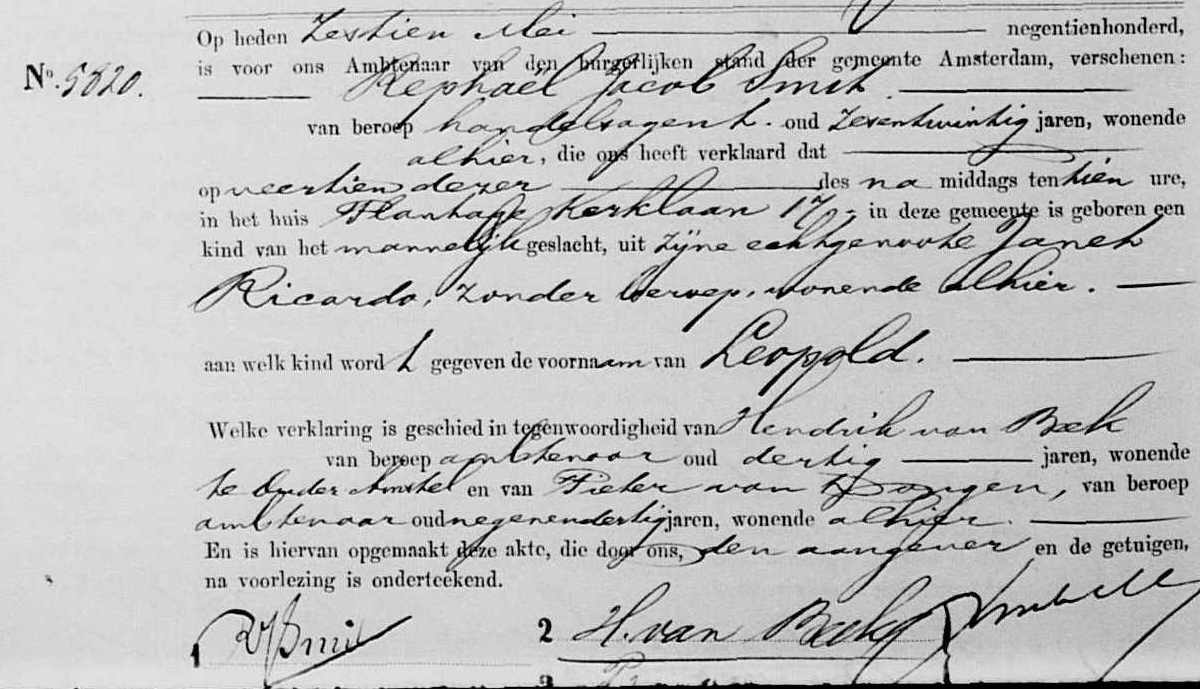 Op heden Zestien Mei negentienhonderd,
is voor ons Ambtenaar van den burgerlijken stand der gemeente Amsterdam, verschenen:
No. 5820. Rephaël Jacob Smit
van beroep handelsagent. oud zesentwintig jaren, wonende
alhier, die ons heeft verklaard dat
op veertien dezer des na middags ten tien ure,
in het huis Plantage Kerklaan 17, in deze gemeente is geboren een
kind van het mannelijk geslacht, uit zijne echtgenoote Janet
Ricardo, zonder beroep, wonende alhier.
aan welk kind word t gegeven de voornaam van Leopold.
Welke verklaring is geschied in tegenwoordigheid van Hendrik van Beek
van beroep ambtenaar oud dertig jaren, wonende
te Ouder Amstel en van Pieter van Dongen, van beroep
ambtenaar oud negenendertig jaren, wonende alhier.
En is hiervan opgemaakt deze akte, die door ons, den aangever en de getuigen,
na voorlezing is onderteekend.
1 RJSmit 2 H. van Beek
3